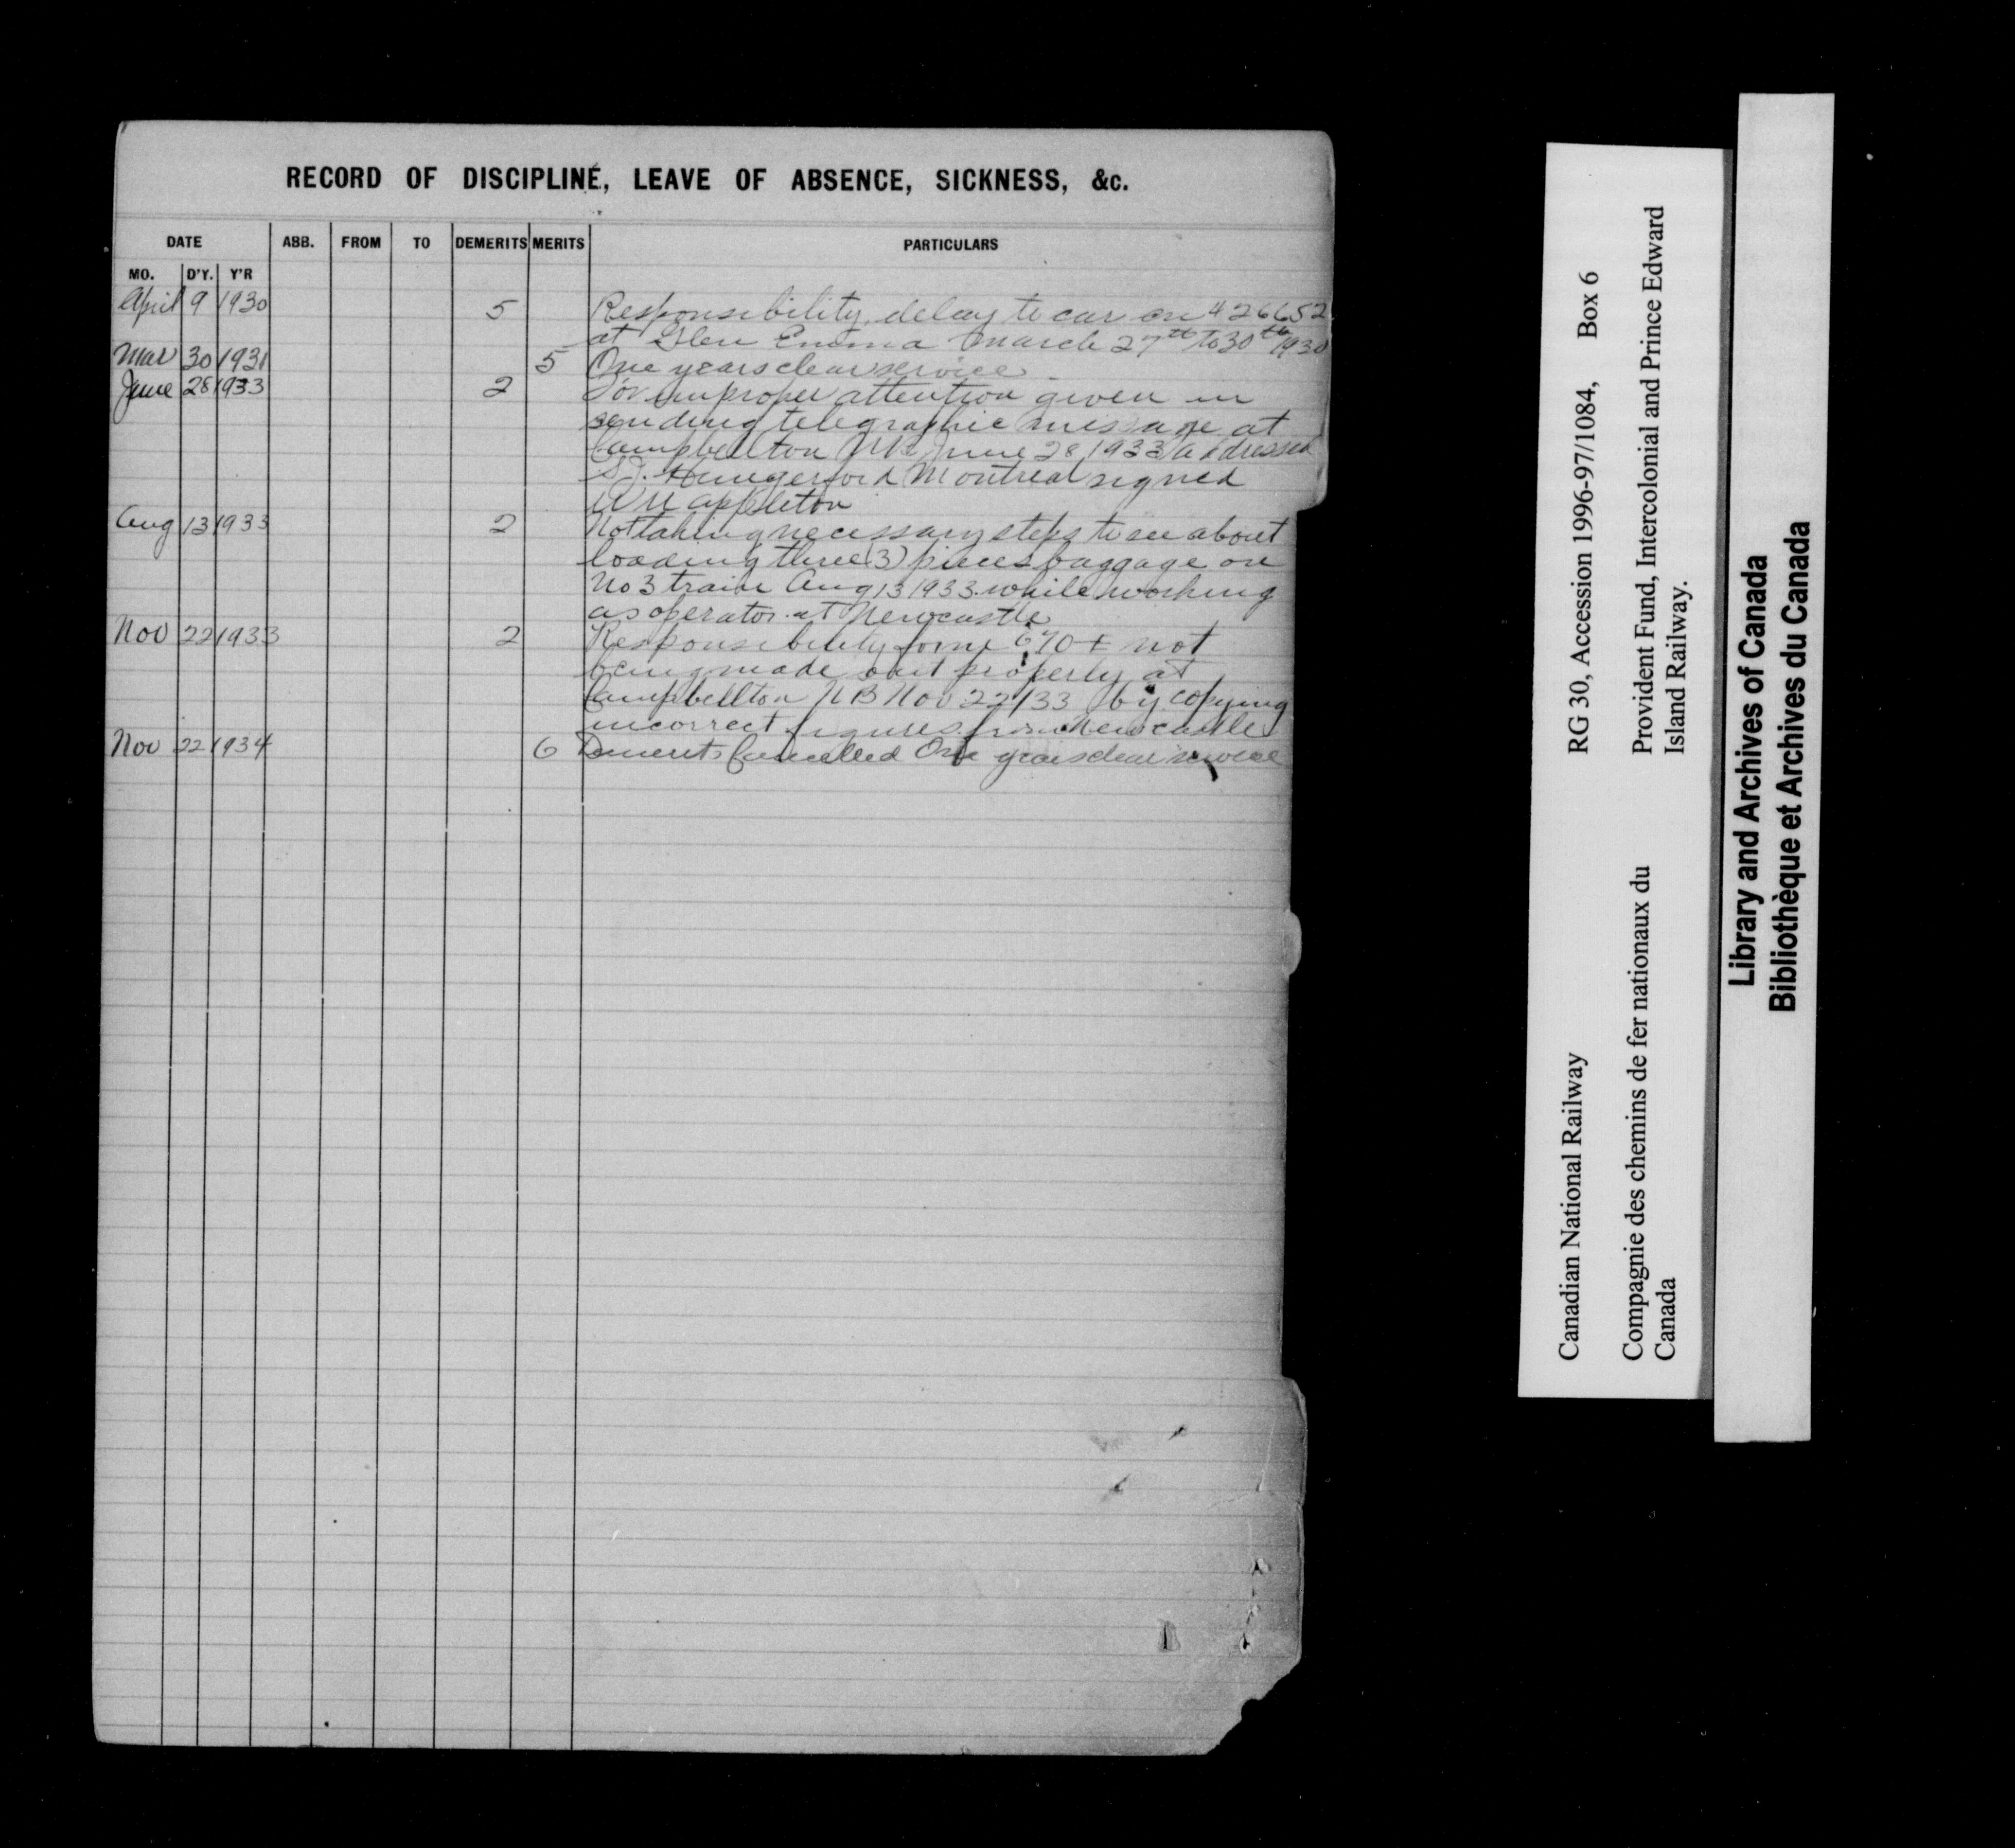 RECORD OF DISCIPLINE, LEAVE OF ABSENCE, SICKNESS, &c.
DATE ABB. FROM TO DEMERITS MERITS PARTICULARS
MO. D'Y. Y'R
April 9 1930 5 Responsibility, delay to car cn 426652
at Glen Emma March 27th to 30th 1930
Mar 30 1931 5 One years clear service
June 28 1933 2 For improper attention given in
sending telegraphic message at
Campbellton NB June 28 1933 addressed
S.J. Hungerford Montreal signed
Appleton
Aug 13 1933 2 Not taking necessary steps to see about
loading three (3) pieces baggage on
No 3 train Aug 13 1933 while working
as operator at Newcastle
Nov 22 1933 2 Responsibility form not
being made out properly at
Campbellton NB Nov 22/33 by copying
incorrect figures from Newcastle
Nov 22 1934 6 Demerits Cancelled One years clear service
Canadian National Railway RG 30, Accession 1996-97/1084, Box 6
Compagnie des chemins de fer nationaux du Provident Fund, Intercolonial and Prince Edward
Canada Island Railway.
Library and Archives of Canada
Bibliothèque et Archives du Canada